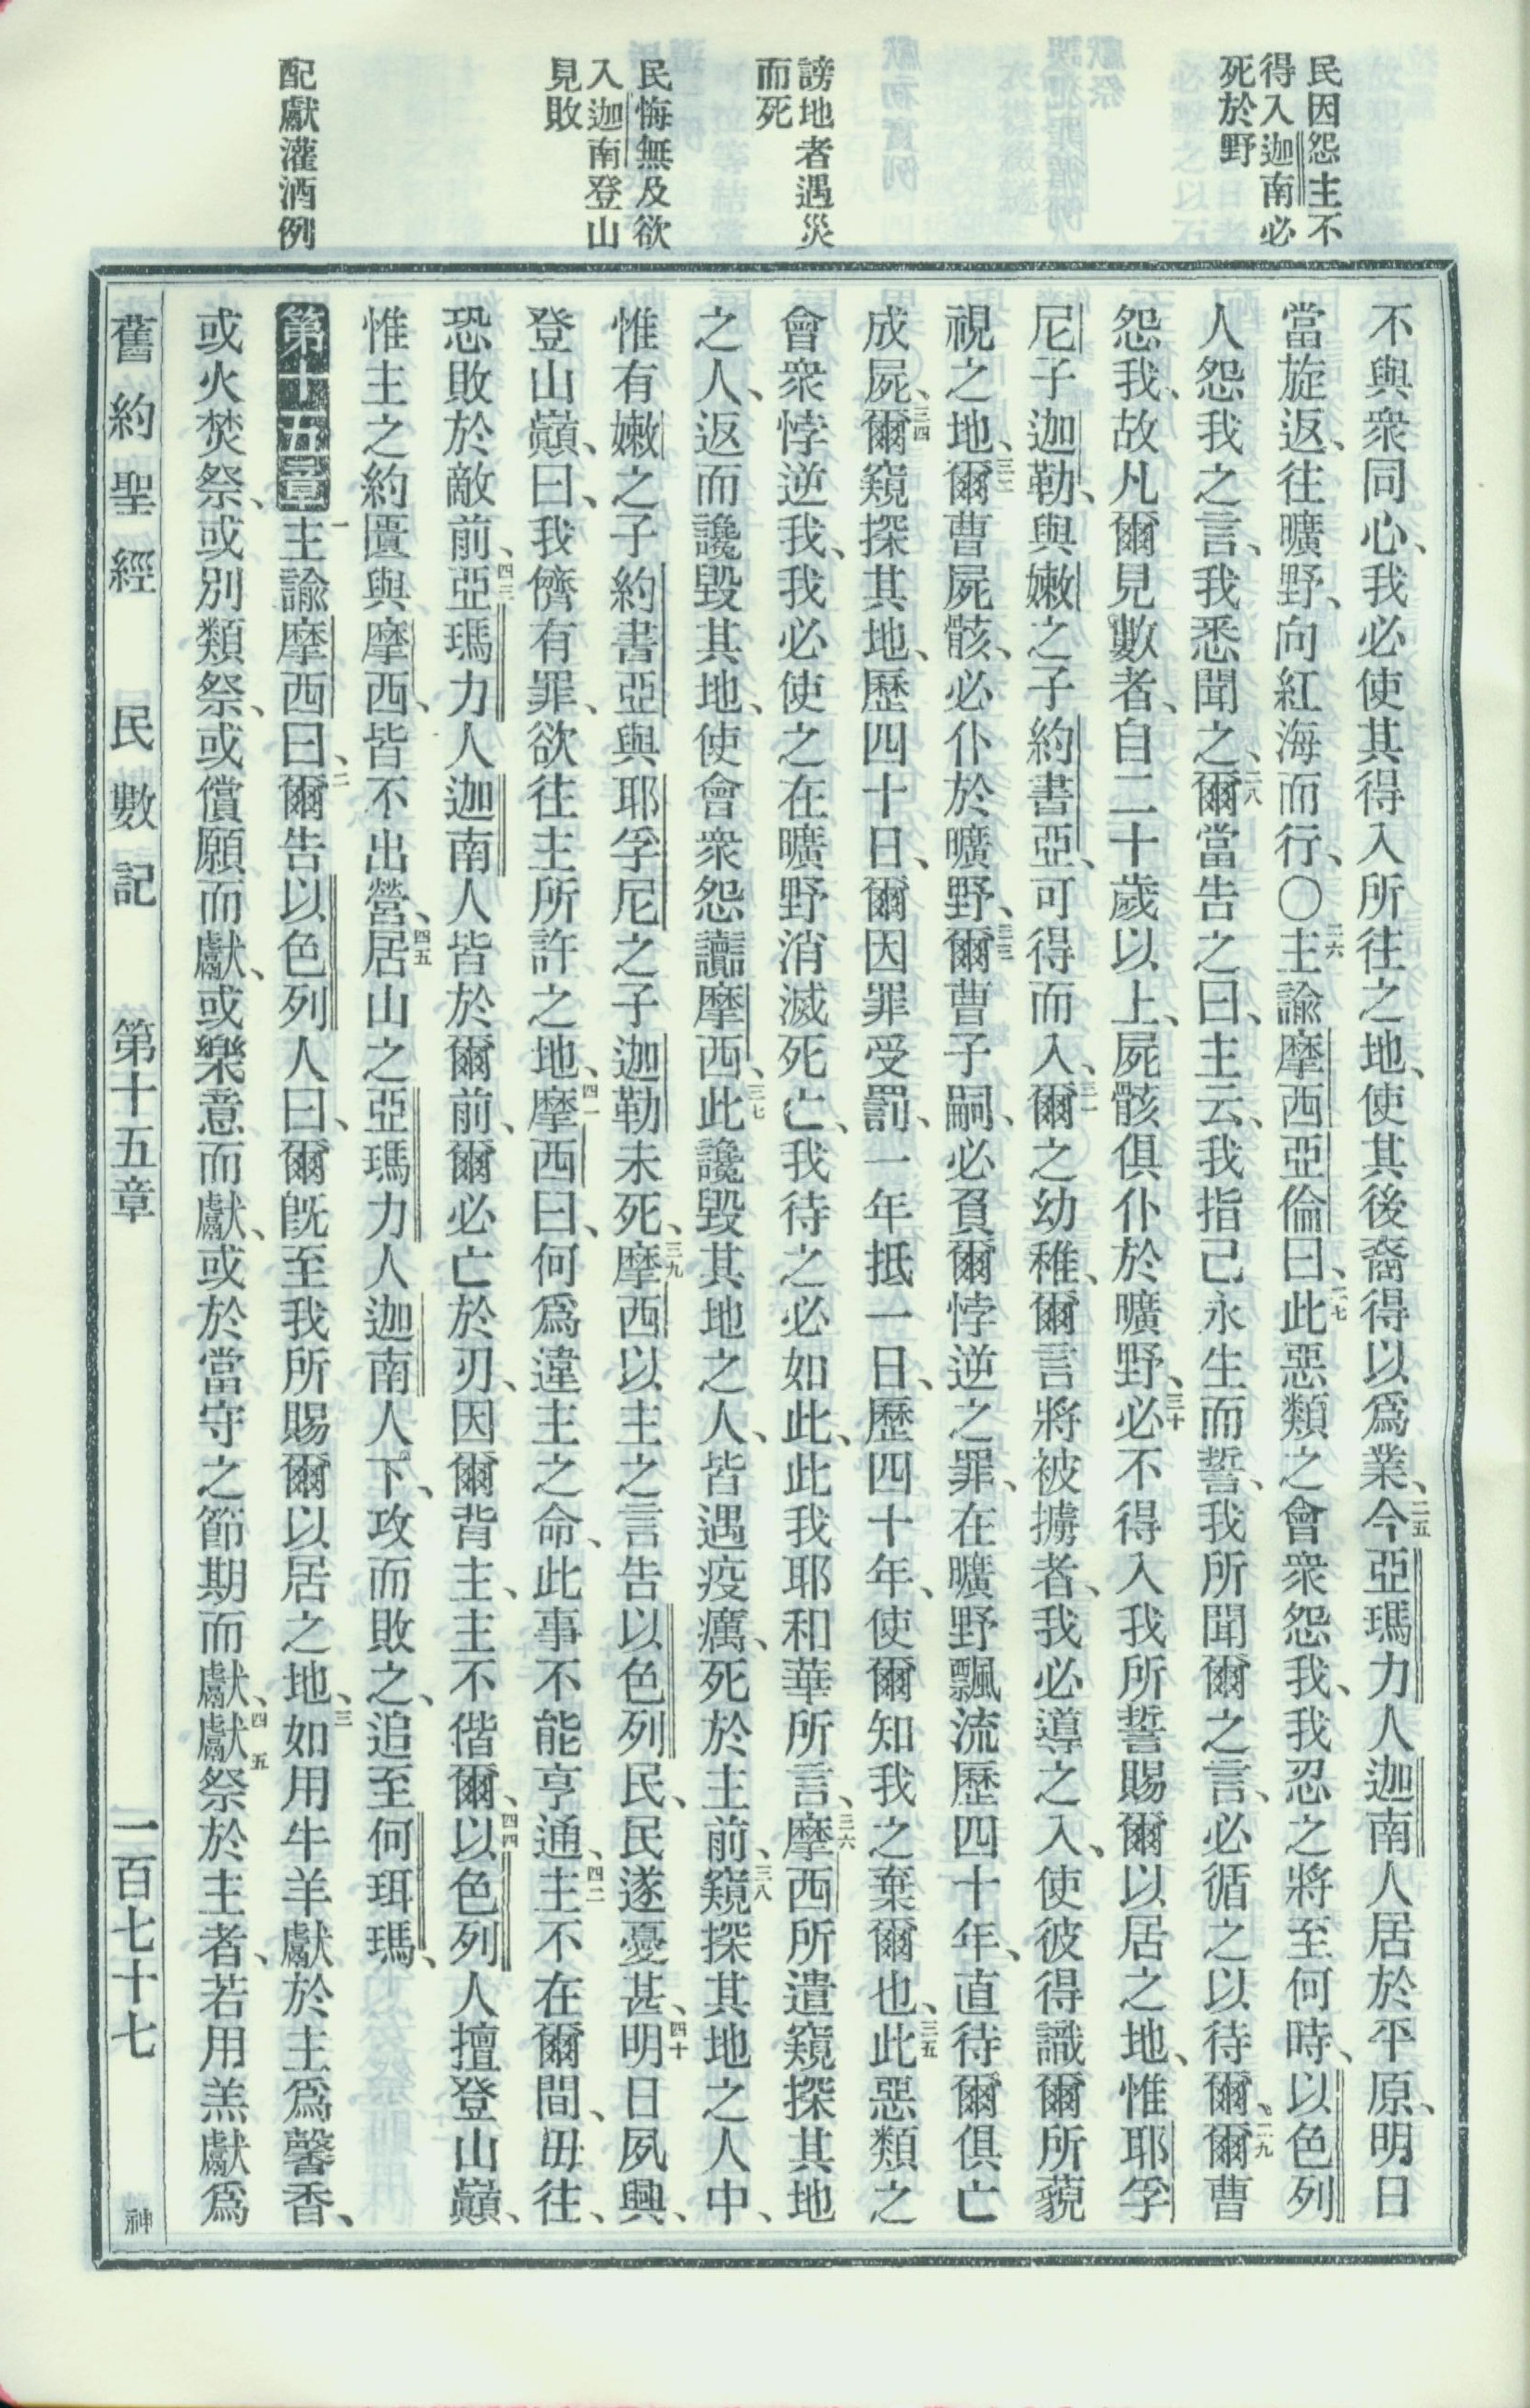 民因怨主不
得入迦南必
死於野
謗地者遇災
而死
民悔無及欲
入迦南登山
見敗
配獻灌酒例
不與衆同心、我必使其得入所往之地、使其後裔得以爲業、二五今亞瑪力人迦南人居於平原、明日
當旋返、往曠野、向紅海而行、〇二六主諭摩西亞倫曰、二七此惡類之會衆怨我、我忍之將至何時、以色列
人怨我之言、我悉聞之、二八爾當告之曰、主云、我指己永生而誓、我所聞爾之言、必循之以待爾、二九爾曹
怨我、故凡爾見數者、自二十歲以上、屍骸俱仆於曠野、三十必不得入我所誓賜爾以居之地、惟耶孚
尼子迦勒、與嫩之子約書亞、可得而入、三一爾之幼稚、爾言將被擄者、我必導之入、使彼得識爾所藐
視之地、三二爾曹屍骸、必仆於曠野、三三爾曹子嗣、必負爾悖逆之罪、在曠野飄流歷四十年、直待爾俱亡
成屍、三四爾窺探其地、歷四十日、爾因罪受罰、一年抵一日、歷四十年、使爾知我之棄爾也、三五此惡類之
會衆悖逆我、我必使之在曠野消滅死亡、我待之必如此、此我耶和華所言、三六摩西所遣窺探其地
之人、返而讒毀其地、使會衆怨讟摩西、三七此讒毀其地之人、皆遇疫癘、死於主前、三八窺探其地之人中、
惟有嫩之子約書亞與耶孚尼之子迦勒未死、三九摩西以主之言告以色列民、民遂憂甚、四十明日夙興、
登山巔、曰、我儕有罪、欲往主所許之地、四一摩西曰、何爲違主之命、此事不能亨通、四二主不在爾間、毋往、
恐敗於敵前、四三亞瑪力人迦南人皆於爾前、爾必亡於刃、因爾背主、主不偕爾、四四以色列人擅登山巔、
惟主之約匱與摩西、皆不出營、四五居山之亞瑪力人迦南人下、攻而敗之、追至何珥瑪、
第十五章一主諭摩西曰、二爾告以色列人曰、爾旣至我所賜爾以居之地、三如用牛羊獻於主爲馨香、
或火焚祭、或別類祭、或償願而獻、或樂意而獻、或於當守之節期而獻、四五獻祭於主者、若用羔獻爲
舊約聖經 民數記 第十五章 一百七十七 神